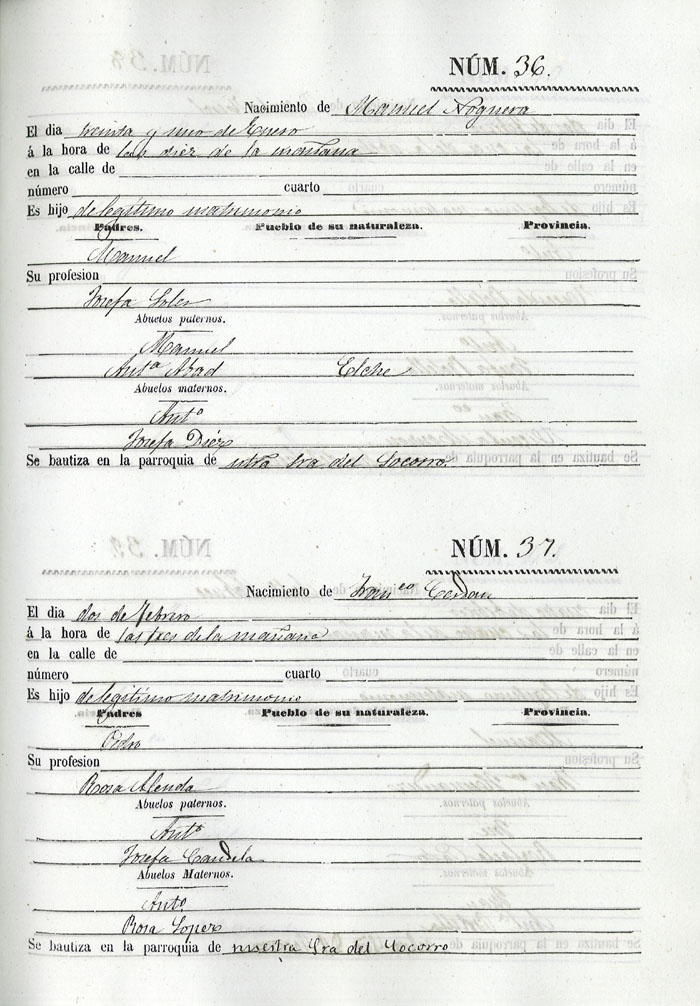 NÚM. 36.
Nacimiento de Manuel Noguera
El dia treinta y uno de Enero
á la hora de las diez de la mañana
en la calle de
número cuarto
Es hijo de legítimo matrimonio
Padres. Pueblo de su naturaleza. Provincia.
Manuel
Su profesion
Josefa Soler
Abuelos paternos.
Manuel
Antª Abad Elche
Abuelos maternos.
Antº
Josefa Diéz
Se bautiza en la parroquia de ntra Sra del Socorro.
NÚM. 37.
Nacimiento de Franco Cerdan
El dia dos de Febrero
á la hora de las tres de la mañana
en la calle de
número cuarto
Es hijo de legítimo matrimonio
Padres Pueblo de su naturaleza. Provincia.
Pedro
Su profesion
Rosa Alenda
Abuelos paternos.
Antº
Josefa Candela
Abuelos Maternos.
Antº
Rosa Lopez
Se bautiza en la parroquia de nuestra Sra del Socorro